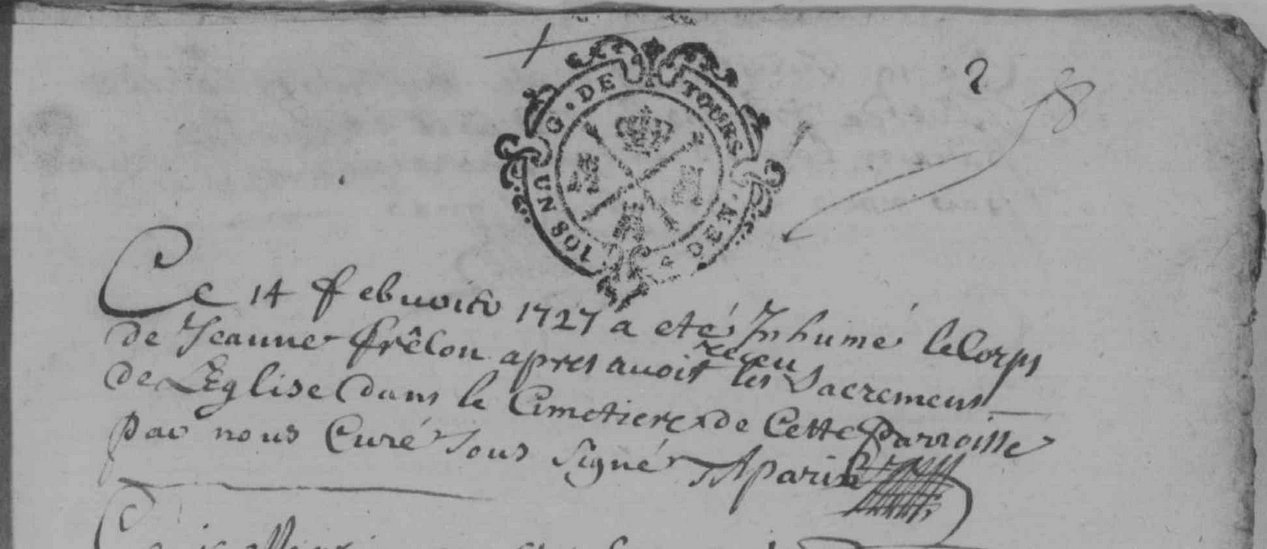 G. DE TOURS
10 S UN DEN.
2
58
Ce 14 febuoire 1727 a eté Inhumé le Corps
de Jeanne frêlon apres avoit receu les Sacremens
de L'Eglise Dans le Cimetiere de Cette parroisse
par nous Curé sous signé Aparis